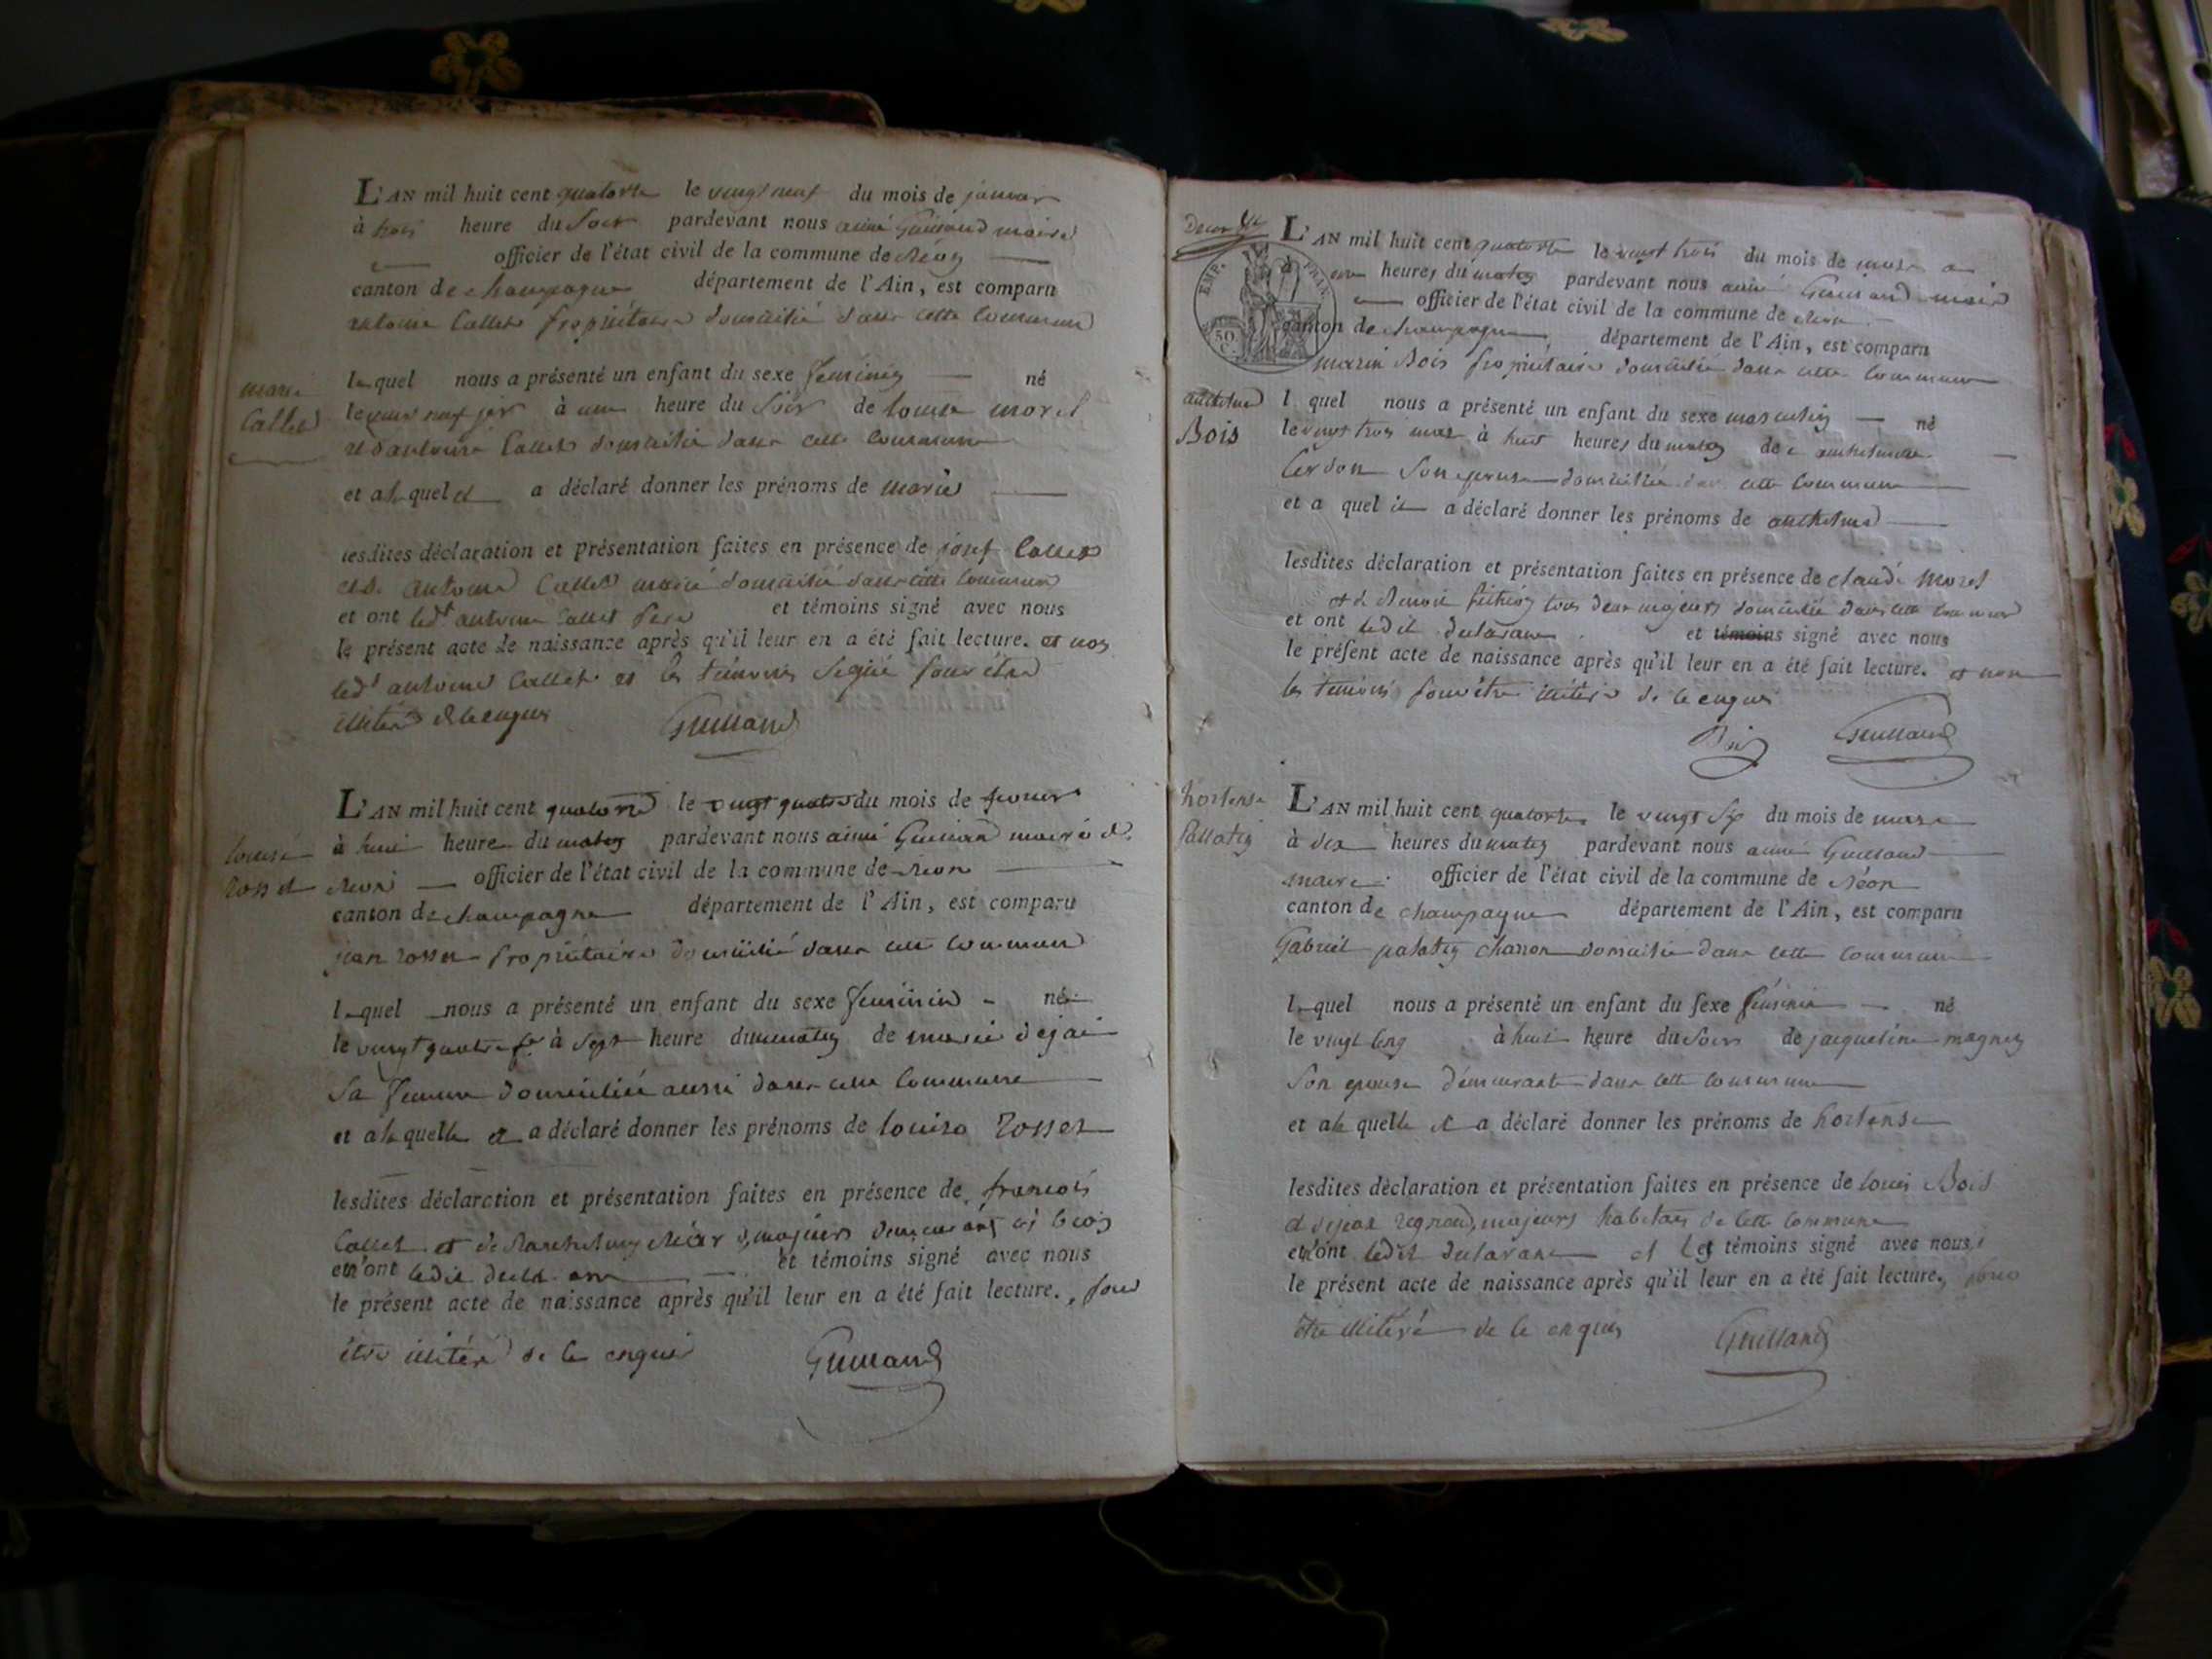 L'AN mil huit cent quatorze le vingt neuf du mois de janvier
à trois heure du soir pardevant nous aimé Guilland maire
officier de l'état civil de la commune de
canton de champagne département de l'Ain, est comparu
antoine Callet propriétaire domicilié dans cette commune
marie
Callet
lequel nous a présenté un enfant du sexe feminin né
le vingt neuf jer à une heure du soir de louise morel
et d'antoine Callet domicilié dans cette commune
et a la quel et a déclaré donner les prénoms de marie
lesdites déclaration et présentation faites en présence de josef Callet
et de antoine Callet domicilié dans cette commune
et ont ledt antoine Callet pere et témoins signé avec nous
le présent acte de naissance après qu'il leur en a été fait lecture. et non
ledt antoine Callet et les temoins signé pour être
illitéré de ce enquis Guilland
L'AN mil huit cent quatorze le vingt quatre du mois de fevrier
à huit heure du matin pardevant nous aimé Guilland maire d
louise
rosset
officier de l'état civil de la commune de
canton de champagne département de l'Ain, est comparu
jean rosset propriétaire domicilié dans cette commune
lequel nous a présenté un enfant du sexe feminin né
le vingt quatre fr à sept heure du matin de marie dejai
sa femme domiciliée aussi dans cette commune
et a la quelle et a déclaré donner les prénoms de louise rosset
lesdites déclaration et présentation faites en présence de francois
Callet et de majeurs
et n'ont ledit declarant et témoins signé avec nous
le présent acte de naissance après qu'il leur en a été fait lecture., pour
être illitéré de ce enquis Guilland
EMP. FRAN.
50
C.
L'AN mil huit cent quatorze le vingt trois du mois de mars a
heures du matin pardevant nous aimé Guilland maire
officier de l'état civil de la commune de
canton de champagne département de l'Ain, est comparu
marin Bois propriétaire domicilié dans cette commune
anthelme
Bois
l quel nous a présenté un enfant du sexe masculin né
le vingt trois mars à huit heures du matin de anthelmette
Cerdon son epouse domiciliée dans cette commune
et a quel il a déclaré donner les prénoms de anthelme
lesdites déclaration et présentation faites en présence de claude morel
et de Benoit tous deux majeurs domicilié dans cette commune
et ont ledit declarant et témoins signé avec nous
le présent acte de naissance après qu'il leur en a été fait lecture. et non
les temoins pour être illitéré de ce enquis
Bois Guilland
hortense
Pallatin
L'AN mil huit cent quatorze le vingt six du mois de mars
à dix heures du matin pardevant nous aimé Guilland
maire officier de l'état civil de la commune de
canton de champagne département de l'Ain, est comparu
Gabriel palatin domicilié dans cette commune
lequel nous a présenté un enfant du sexe féminin né
le vingt cinq à huit heure du soir de jacqueline magnin
son epouse demeurant dans cette commune
et a la quelle et a déclaré donner les prénoms de hortense
lesdites déclaration et présentation faites en présence de louis Bois
majeurs habitans de cette commune
et n'ont ledit declarant et les témoins signé avec nous,
le présent acte de naissance après qu'il leur en a été fait lecture., pour
être illitéré de ce enquis Guilland